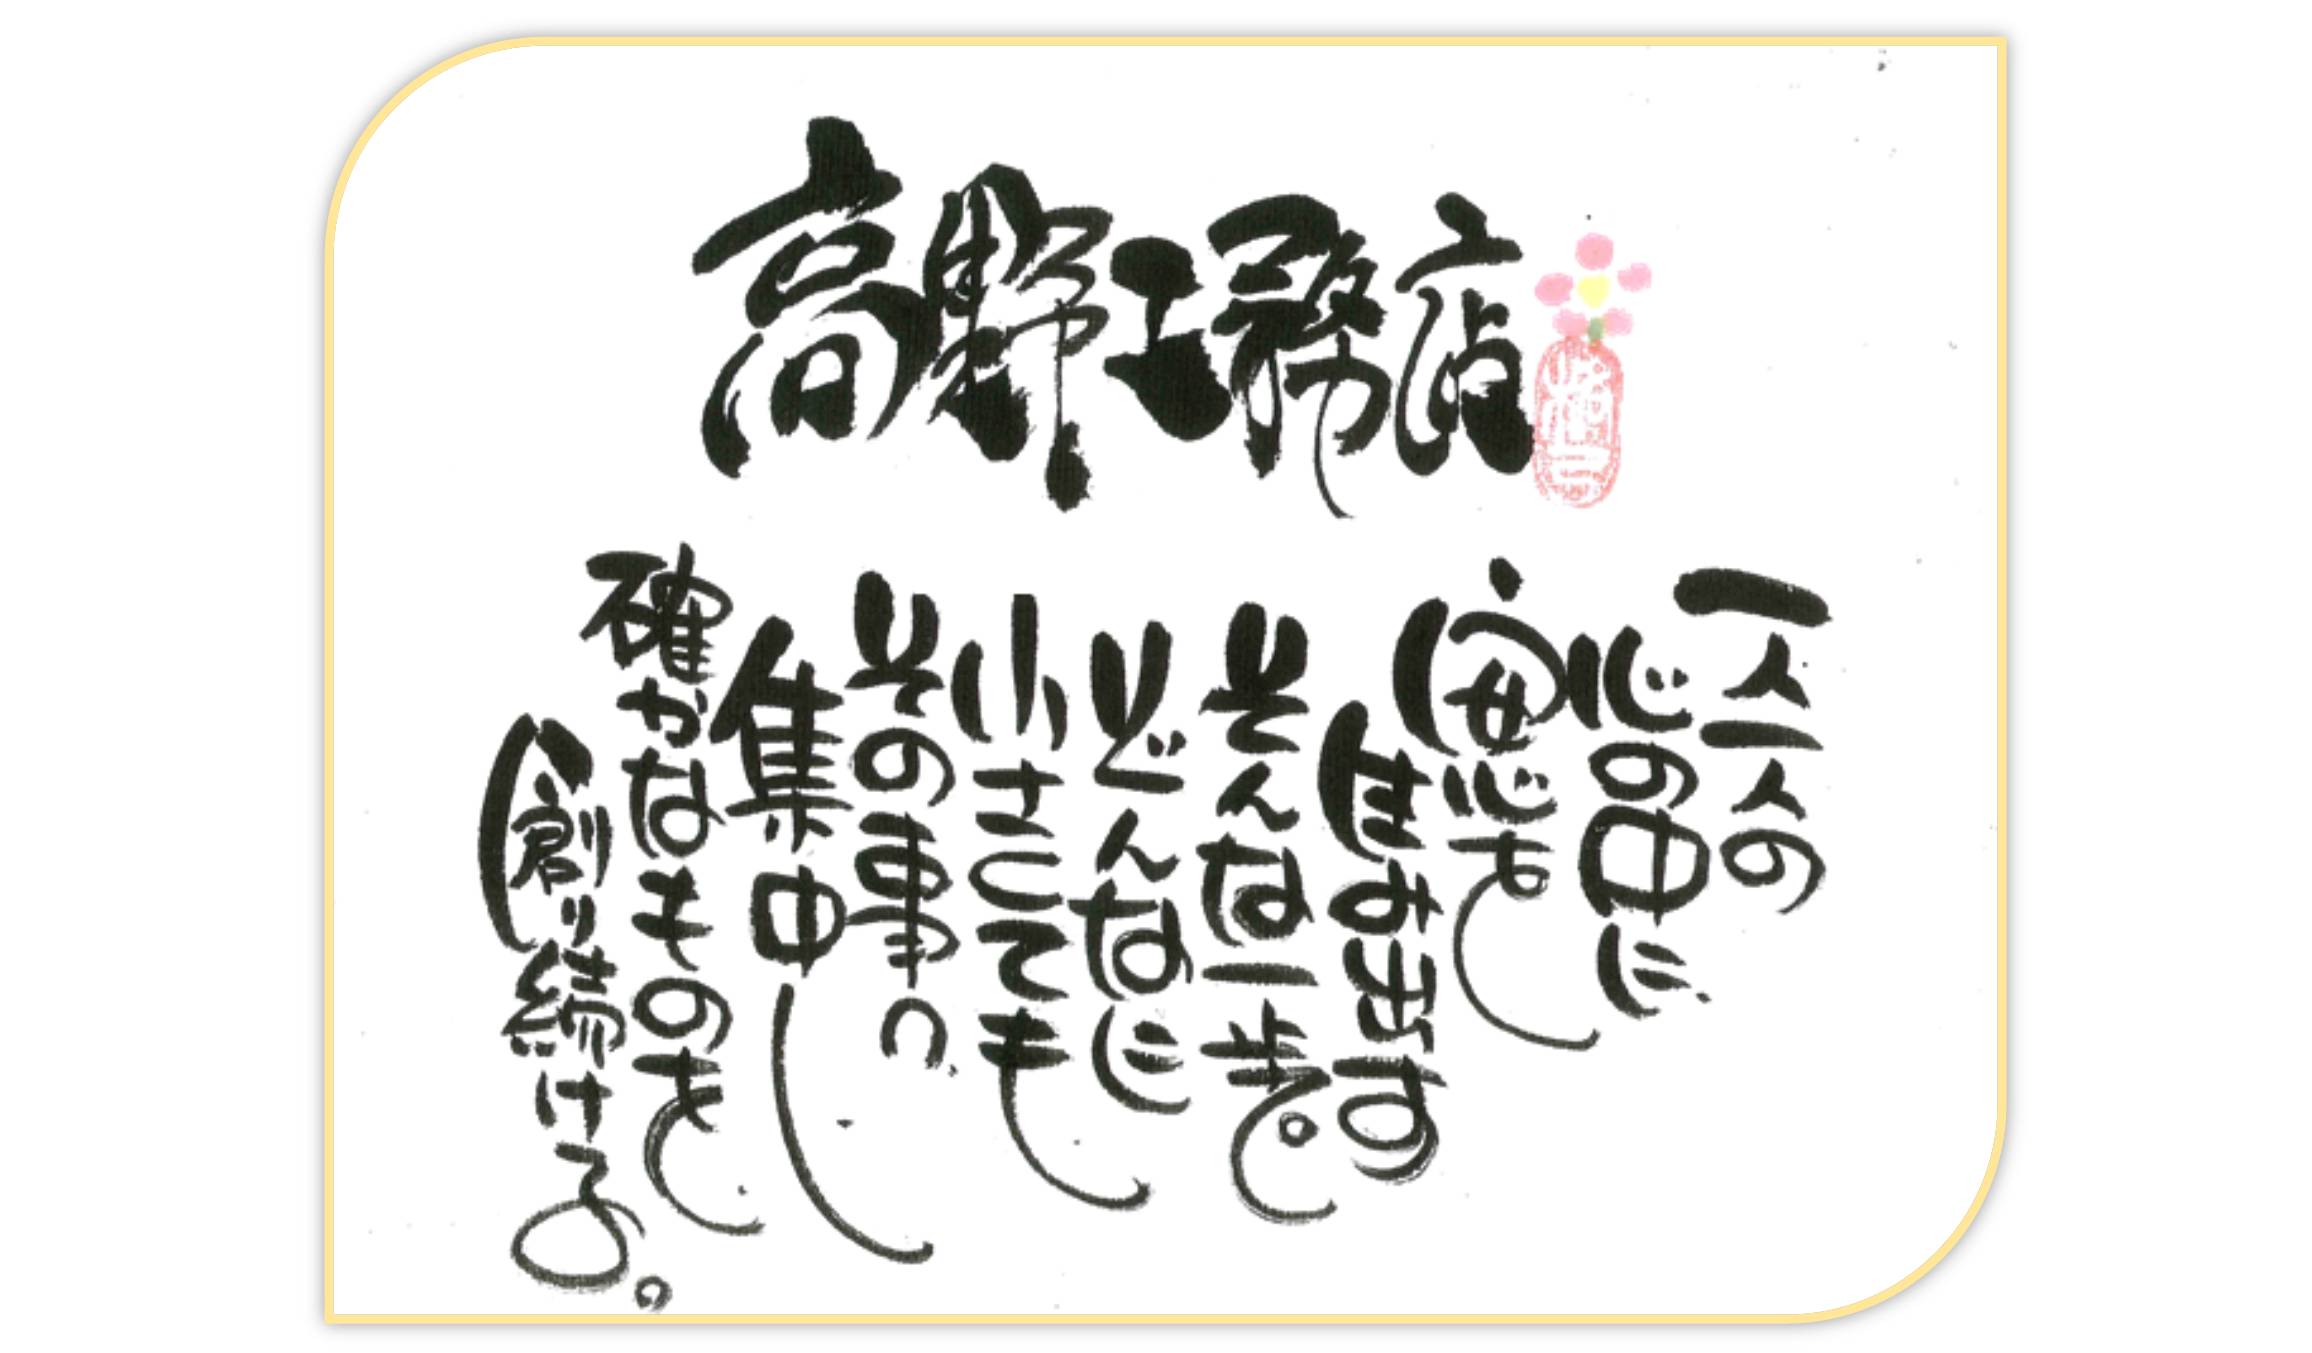 高野工務店
一人一人の
心の中に、
安心を
生み出す
そんな一歩。
どんなに
小さくても
その事に、
集中し
確かなものを
創り続ける。